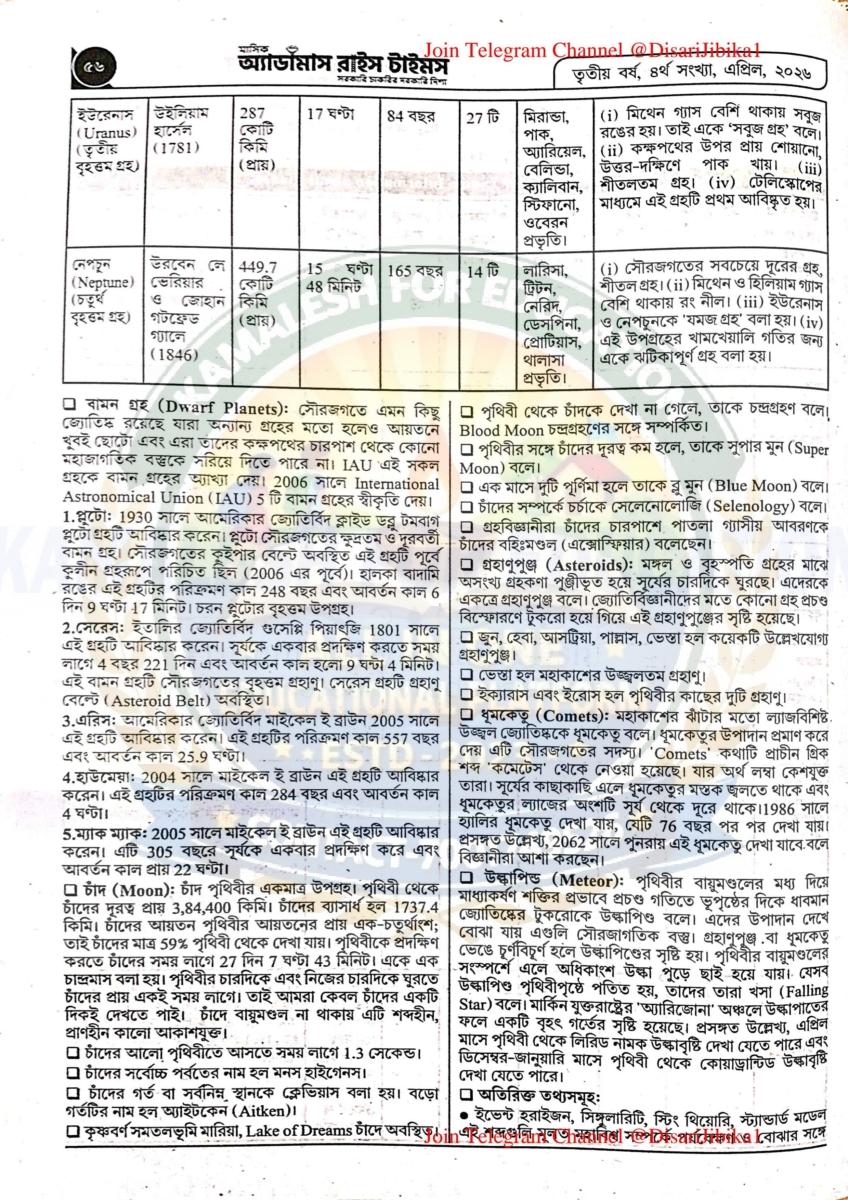 ৫৬
মাসিক
অ্যাডামাস রাইস টাইমস
সরকারি চাকরির সরকারি দিশা
Join Telegram Channel @DisariJibika1
তৃতীয় বর্ষ, ৪র্থ সংখ্যা, এপ্রিল, ২০২৬
ইউরেনাস
(Uranus)
(তৃতীয়
বৃহত্তম গ্রহ)
উইলিয়াম
হার্সেল
(1781)
287
কোটি
কিমি
(প্রায়)
17 ঘণ্টা
84 বছর
27 টি
মিরান্ডা,
পাক,
অ্যারিয়েল,
বেলিন্ডা,
ক্যালিবান,
স্টিফানো,
ওবেরন
প্রভৃতি।
(i) মিথেন গ্যাস বেশি থাকায় সবুজ
রঙের হয়। তাই একে ‘সবুজ গ্রহ’ বলে।
(ii) কক্ষপথের উপর প্রায় শোয়ানো,
উত্তর-দক্ষিণে পাক খায়। (iii)
শীতলতম গ্রহ। (iv) টেলিস্কোপের
মাধ্যমে এই গ্রহটি প্রথম আবিষ্কৃত হয়।
নেপচুন
(Neptune)
(চতুর্থ
বৃহত্তম গ্রহ)
উরবেন লে
ভেরিয়ার
ও জোহান
গটফ্রেড
গ্যালে
(1846)
449.7
কোটি
কিমি
(প্রায়)
15 ঘণ্টা
48 মিনিট
165 বছর
14 টি
লারিসা,
ট্রিটন,
নেরিদ,
ডেসপিনা,
প্রোটিয়াস,
থালাসা
প্রভৃতি।
(i) সৌরজগতের সবচেয়ে দূরের গ্রহ,
শীতল গ্রহ। (ii) মিথেন ও হিলিয়াম গ্যাস
বেশি থাকায় রং নীল। (iii) ইউরেনাস
ও নেপচুনকে ‘যমজ গ্রহ’ বলা হয়। (iv)
এই উপগ্রহের খামখেয়ালি গতির জন্য
একে ঝটিকাপূর্ণ গ্রহ বলা হয়।
❑ বামন গ্রহ (Dwarf Planets): সৌরজগতে এমন কিছু
জ্যোতিষ্ক রয়েছে যারা অন্যান্য গ্রহের মতো হলেও আয়তনে
খুবই ছোটো এবং এরা তাদের কক্ষপথের চারপাশ থেকে কোনো
মহাজাগতিক বস্তুকে সরিয়ে দিতে পারে না। IAU এই সকল
গ্রহকে বামন গ্রহের আখ্যা দেয়। 2006 সালে International
Astronomical Union (IAU) 5 টি বামন গ্রহের স্বীকৃতি দেয়।
1.প্লুটো: 1930 সালে আমেরিকার জ্যোতির্বিদ ক্লাইড ডব্লু টমবাগ
প্লুটো গ্রহটি আবিষ্কার করেন। প্লুটো সৌরজগতের ক্ষুদ্রতম ও দূরবর্তী
বামন গ্রহ। সৌরজগতের কুইপার বেল্টে অবস্থিত এই গ্রহটি পূর্বে
কুলীন গ্রহরূপে পরিচিত ছিল (2006 এর পূর্বে)। হালকা বাদামি
রঙের এই গ্রহটির পরিক্রমণ কাল 248 বছর এবং আবর্তন কাল 6
দিন 9 ঘণ্টা 17 মিনিট। চরন প্লুটোর বৃহত্তম উপগ্রহ।
2.সেরেস: ইতালির জ্যোতির্বিদ গুসেপ্পি পিয়াৎজি 1801 সালে
এই গ্রহটি আবিষ্কার করেন। সূর্যকে একবার প্রদক্ষিণ করতে সময়
লাগে 4 বছর 221 দিন এবং আবর্তন কাল হলো 9 ঘণ্টা 4 মিনিট।
এই বামন গ্রহটি সৌরজগতের বৃহত্তম গ্রহাণু। সেরেস গ্রহটি গ্রহাণু
বেল্টে (Asteroid Belt) অবস্থিত।
3.এরিস: আমেরিকার জ্যোতির্বিদ মাইকেল ই ব্রাউন 2005 সালে
এই গ্রহটি আবিষ্কার করেন। এই গ্রহটির পরিক্রমণ কাল 557 বছর
এবং আবর্তন কাল 25.9 ঘণ্টা।
4.হাউমেয়া: 2004 সালে মাইকেল ই ব্রাউন এই গ্রহটি আবিষ্কার
করেন। এই গ্রহটির পরিক্রমণ কাল 284 বছর এবং আবর্তন কাল
4 ঘণ্টা।
5.ম্যাক ম্যাক: 2005 সালে মাইকেল ই ব্রাউন এই গ্রহটি আবিষ্কার
করেন। এটি 305 বছরে সূর্যকে একবার প্রদক্ষিণ করে এবং
আবর্তন কাল প্রায় 22 ঘণ্টা।
❑ চাঁদ (Moon): চাঁদ পৃথিবীর একমাত্র উপগ্রহ। পৃথিবী থেকে
চাঁদের দূরত্ব প্রায় 3,84,400 কিমি। চাঁদের ব্যাসার্ধ হল 1737.4
কিমি। চাঁদের আয়তন পৃথিবীর আয়তনের প্রায় এক-চতুর্থাংশ;
তাই চাঁদের মাত্র 59% পৃথিবী থেকে দেখা যায়। পৃথিবীকে প্রদক্ষিণ
করতে চাঁদের সময় লাগে 27 দিন 7 ঘণ্টা 43 মিনিট। একে এক
চান্দ্রমাস বলা হয়। পৃথিবীর চারদিকে এবং নিজের চারদিকে ঘুরতে
চাঁদের প্রায় একই সময় লাগে। তাই আমরা কেবল চাঁদের একটি
দিকই দেখতে পাই। চাঁদে বায়ুমণ্ডল না থাকায় এটি শব্দহীন,
প্রাণহীন কালো আকাশযুক্ত।
❑ চাঁদের আলো পৃথিবীতে আসতে সময় লাগে 1.3 সেকেন্ড।
❑ চাঁদের সর্বোচ্চ পর্বতের নাম হল মনস হাইগেনস।
❑ চাঁদের গর্ত বা সর্বনিম্ন স্থানকে ক্লেভিয়াস বলা হয়। বড়ো
গর্তটির নাম হল অ্যাইটকেন (Aitken)।
❑ কৃষ্ণবর্ণ সমতলভূমি মারিয়া, Lake of Dreams চাঁদে অবস্থিত।
❑ পৃথিবী থেকে চাঁদকে দেখা না গেলে, তাকে চন্দ্রগ্রহণ বলে।
Blood Moon চন্দ্রগ্রহণের সঙ্গে সম্পর্কিত।
❑ পৃথিবীর সঙ্গে চাঁদের দূরত্ব কম হলে, তাকে সুপার মুন (Super
Moon) বলে।
❑ এক মাসে দুটি পূর্ণিমা হলে তাকে ব্লু মুন (Blue Moon) বলে।
❑ চাঁদের সম্পর্কে চর্চাকে সেলেনোলোজি (Selenology) বলে।
❑ গ্রহবিজ্ঞানীরা চাঁদের চারপাশে পাতলা গ্যাসীয় আবরণকে
চাঁদের বহিঃমণ্ডল (এক্সোস্ফিয়ার) বলেছেন।
❑ গ্রহাণুপুঞ্জ (Asteroids): মঙ্গল ও বৃহস্পতি গ্রহের মাঝে
অসংখ্য গ্রহকণা পুঞ্জীভূত হয়ে সূর্যের চারদিকে ঘুরছে। এদেরকে
একত্রে গ্রহাণুপুঞ্জ বলে। জ্যোতির্বিজ্ঞানীদের মতে কোনো গ্রহ প্রচণ্ড
বিস্ফোরণে টুকরো হয়ে গিয়ে এই গ্রহাণুপুঞ্জের সৃষ্টি হয়েছে।
❑ জুন, হেবা, আসট্রিয়া, পাল্লাস, ভেস্তা হল কয়েকটি উল্লেখযোগ্য
গ্রহাণুপুঞ্জ।
❑ ভেস্তা হল মহাকাশের উজ্জ্বলতম গ্রহাণু।
❑ ইক্যারাস এবং ইরোস হল পৃথিবীর কাছের দুটি গ্রহাণু।
❑ ধূমকেতু (Comets): মহাকাশের ঝাঁটার মতো ল্যাজবিশিষ্ট
উজ্জ্বল জ্যোতিষ্ককে ধূমকেতু বলে। ধূমকেতুর উপাদান প্রমাণ করে
দেয় এটি সৌরজগতের সদস্য। 'Comets' কথাটি প্রাচীন গ্রিক
শব্দ 'কমেটেস' থেকে নেওয়া হয়েছে। যার অর্থ লম্বা কেশযুক্ত
তারা। সূর্যের কাছাকাছি এলে ধূমকেতুর মস্তক জ্বলতে থাকে এবং
ধূমকেতুর ল্যাজের অংশটি সূর্য থেকে দূরে থাকে।1986 সালে
হ্যালির ধূমকেতু দেখা যায়, যেটি 76 বছর পর পর দেখা যায়।
প্রসঙ্গত উল্লেখ্য, 2062 সালে পুনরায় এই ধূমকেতু দেখা যাবে বলে
বিজ্ঞানীরা আশা করছেন।
❑ উল্কাপিন্ড (Meteor): পৃথিবীর বায়ুমণ্ডলের মধ্য দিয়ে
মাধ্যাকর্ষণ শক্তির প্রভাবে প্রচণ্ড গতিতে ভূপৃষ্ঠের দিকে ধাবমান
জ্যোতিষ্কের টুকরোকে উল্কাপিণ্ড বলে। এদের উপাদান দেখে
বোঝা যায় এগুলি সৌরজাগতিক বস্তু। গ্রহাণুপুঞ্জ বা ধূমকেতু
ভেঙে চূর্ণবিচূর্ণ হলে উল্কাপিণ্ডের সৃষ্টি হয়। পৃথিবীর বায়ুমণ্ডলের
সংস্পর্শে এলে অধিকাংশ উল্কা পুড়ে ছাই হয়ে যায়। যেসব
উল্কাপিণ্ড পৃথিবীপৃষ্ঠে পতিত হয়, তাদের তারা খসা (Falling
Star) বলে। মার্কিন যুক্তরাষ্ট্রের 'অ্যারিজোনা' অঞ্চলে উল্কাপাতের
ফলে একটি বৃহৎ গর্তের সৃষ্টি হয়েছে। প্রসঙ্গত উল্লেখ্য, এপ্রিল
মাসে পৃথিবী থেকে লিরিড নামক উল্কাবৃষ্টি দেখা যেতে পারে এবং
ডিসেম্বর-জানুয়ারি মাসে পৃথিবী থেকে কোয়াড্রান্টিড উল্কাবৃষ্টি
দেখা যেতে পারে।
❑ অতিরিক্ত তথ্যসমূহ:
● ইভেন্ট হরাইজন, সিঙ্গুলারিটি, স্টিং থিয়োরি, স্ট্যান্ডার্ড মডেল
এই শব্দগুলি মূলত মহাবিশ্ব সম্পর্কে পর্যবেক্ষণ ও বোঝার সঙ্গে
Join Telegram Channel @DisariJibika1
KAMALESH FOR EDUCATION